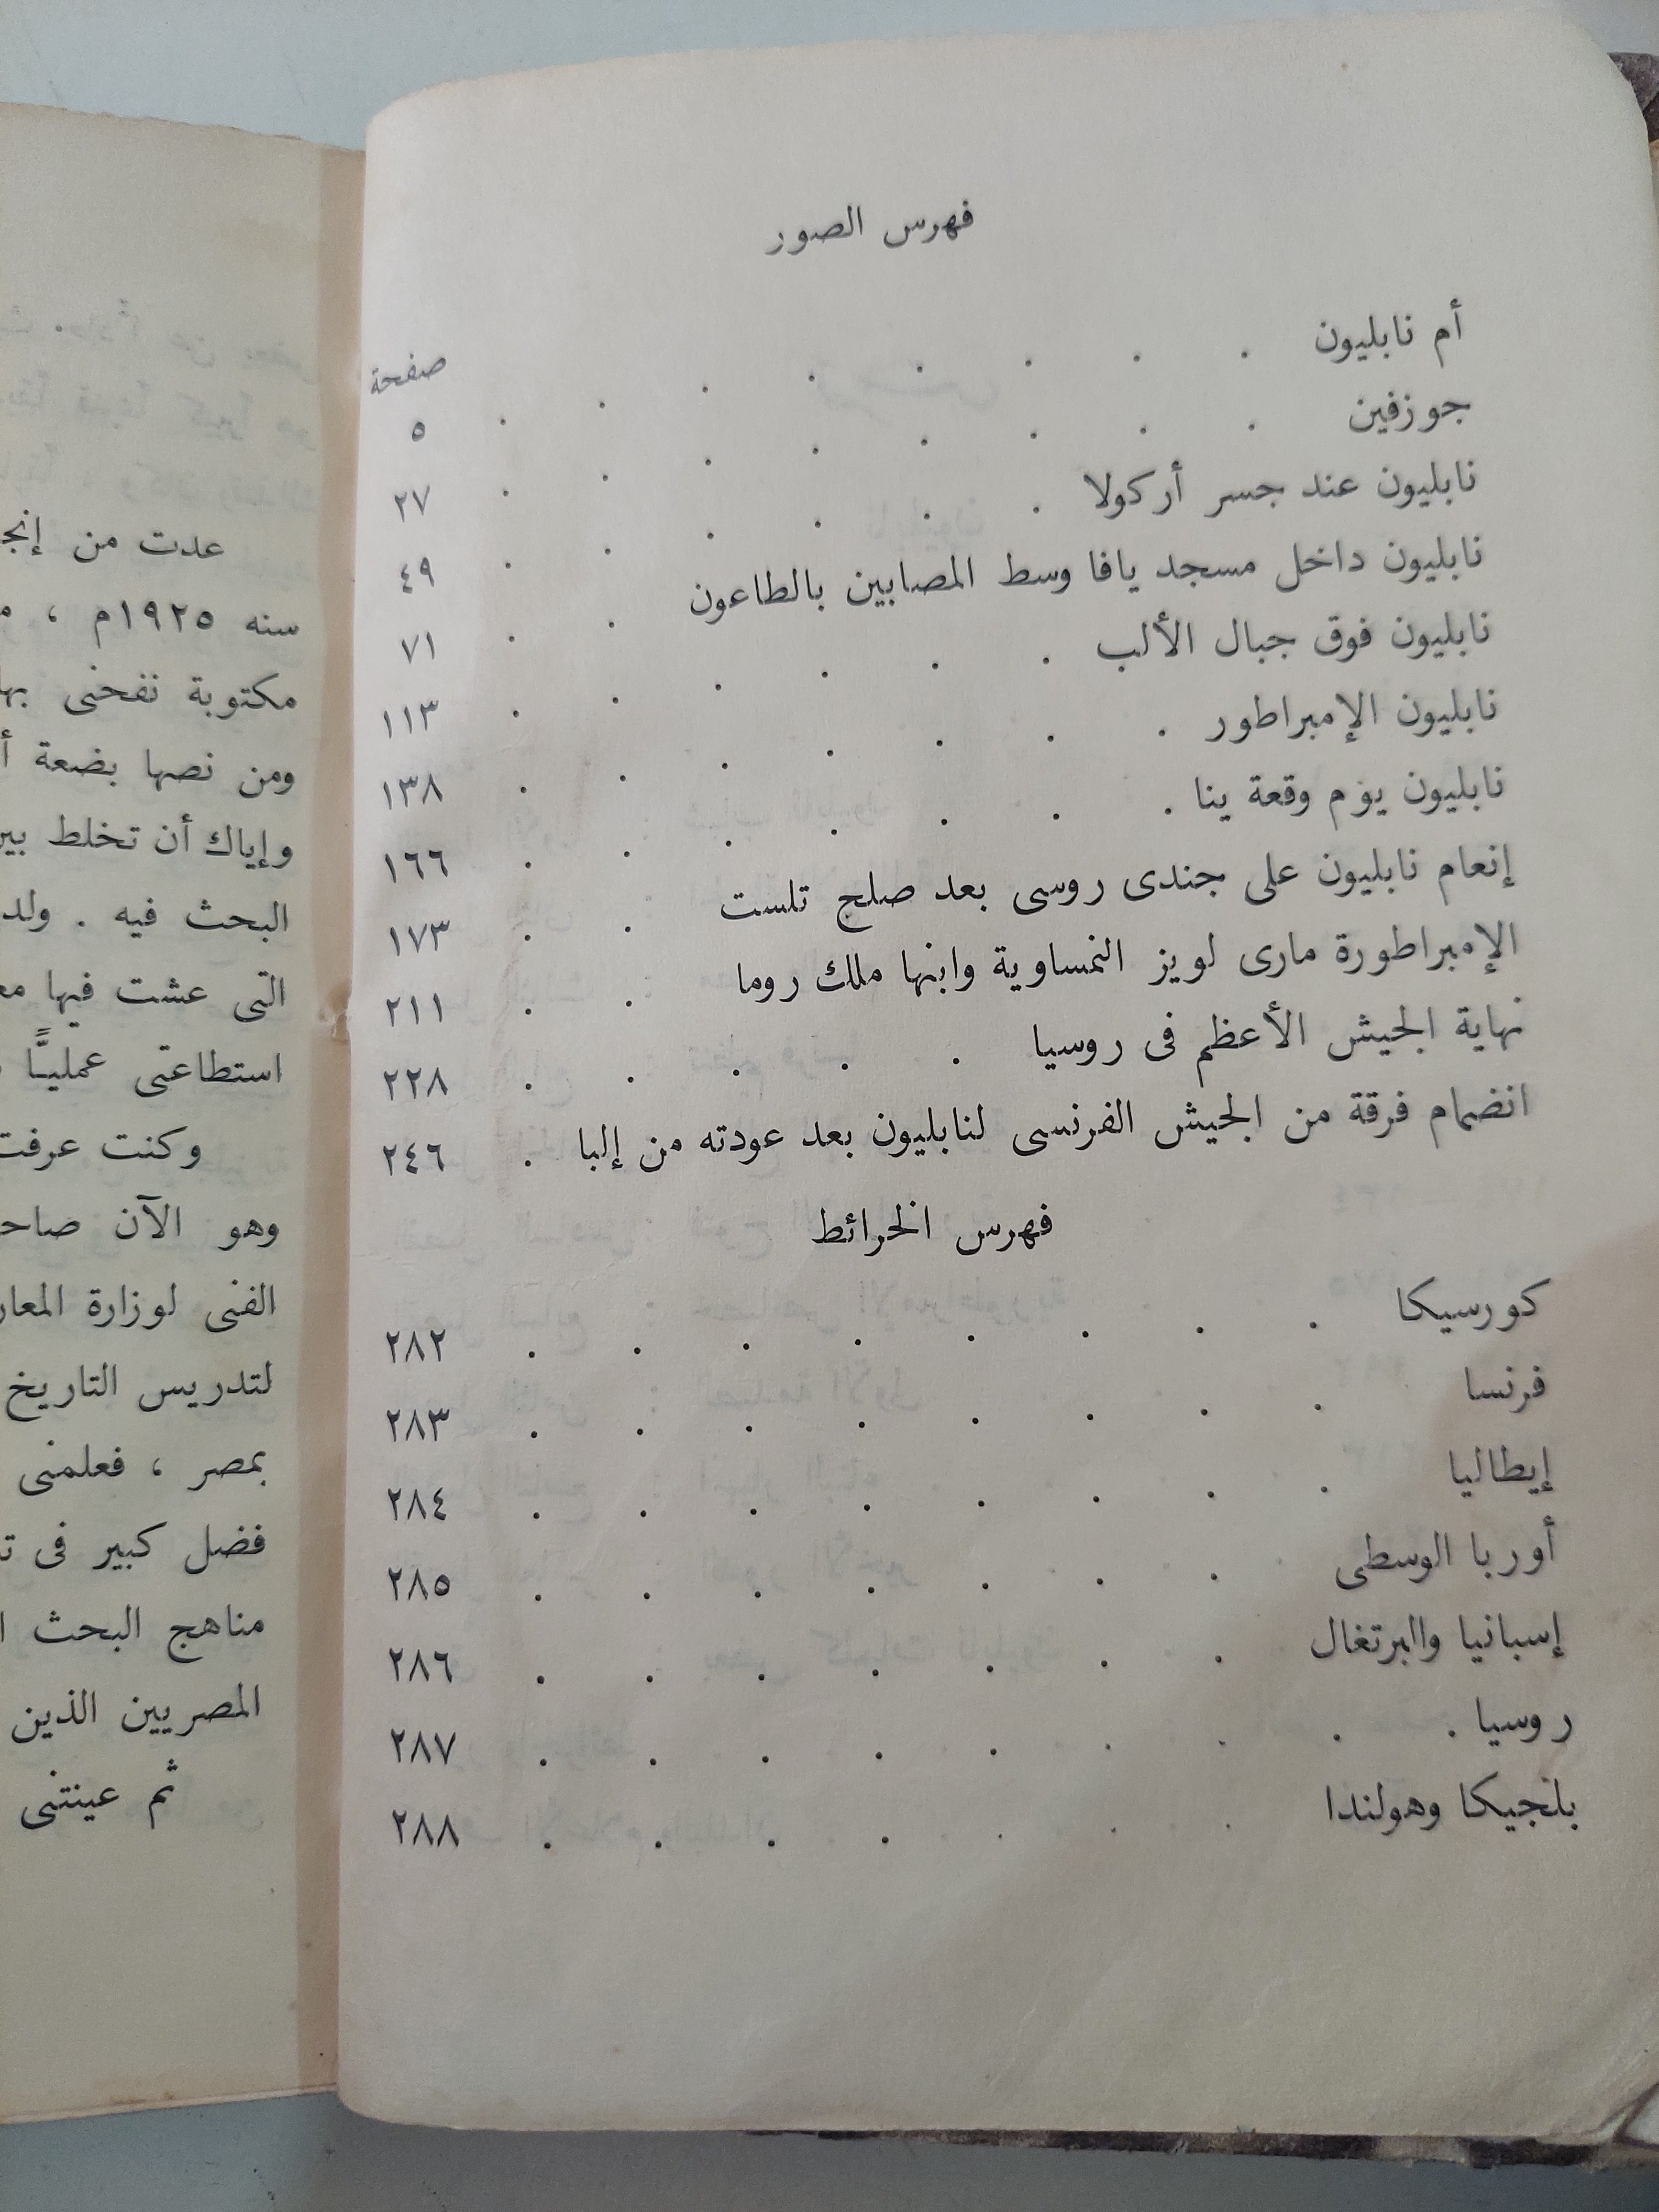 فهرس الصور
صفحة
أم نابليون . . . . . . . . ٥
جوزفين . . . . . . . . ٢٧
نابليون عند جسر أركولا . . . . . . ٤٩
نابليون داخل مسجد يافا وسط المصابين بالطاعون . . ٧١
نابليون فوق جبال الألب . . . . . . ١١٣
نابليون الإمبراطور . . . . . . . ١٣٨
نابليون يوم وقعة ينا . . . . . . . ١٦٦
إنعام نابليون على جندى روسى بعد صلح تلست . . ١٧٣
الإمبراطورة مارى لويز النمساوية وابنها ملك روما . . ٢١١
نهاية الجيش الأعظم فى روسيا . . . . . ٢٢٨
انضمام فرقة من الجيش الفرنسى لنابليون بعد عودته من إلبا . ٢٤٦
فهرس الخرائط
كورسيكا . . . . . . . . ٢٨٢
فرنسا . . . . . . . . ٢٨٣
إيطاليا . . . . . . . . ٢٨٤
أوربا الوسطى . . . . . . . ٢٨٥
إسبانيا والبرتغال . . . . . . . ٢٨٦
روسيا . . . . . . . . . ٢٨٧
بلجيكا وهولندا . . . . . . . ٢٨٨
عدت من
سنه ١٩٢٥م ،
مكتوبة نفحنى
ومن نصها بضعة
وإياك أن تخلط
البحث فيه .
التى عشت فيها
استطاعتى عمليًّا
وكنت
وهو الآن
الفنى لوزارة
لتدريس التاريخ
بمصر ، فعلمنى
فضل كبير فى
مناهج البحث
المصريين الذين
ثم عينتنى